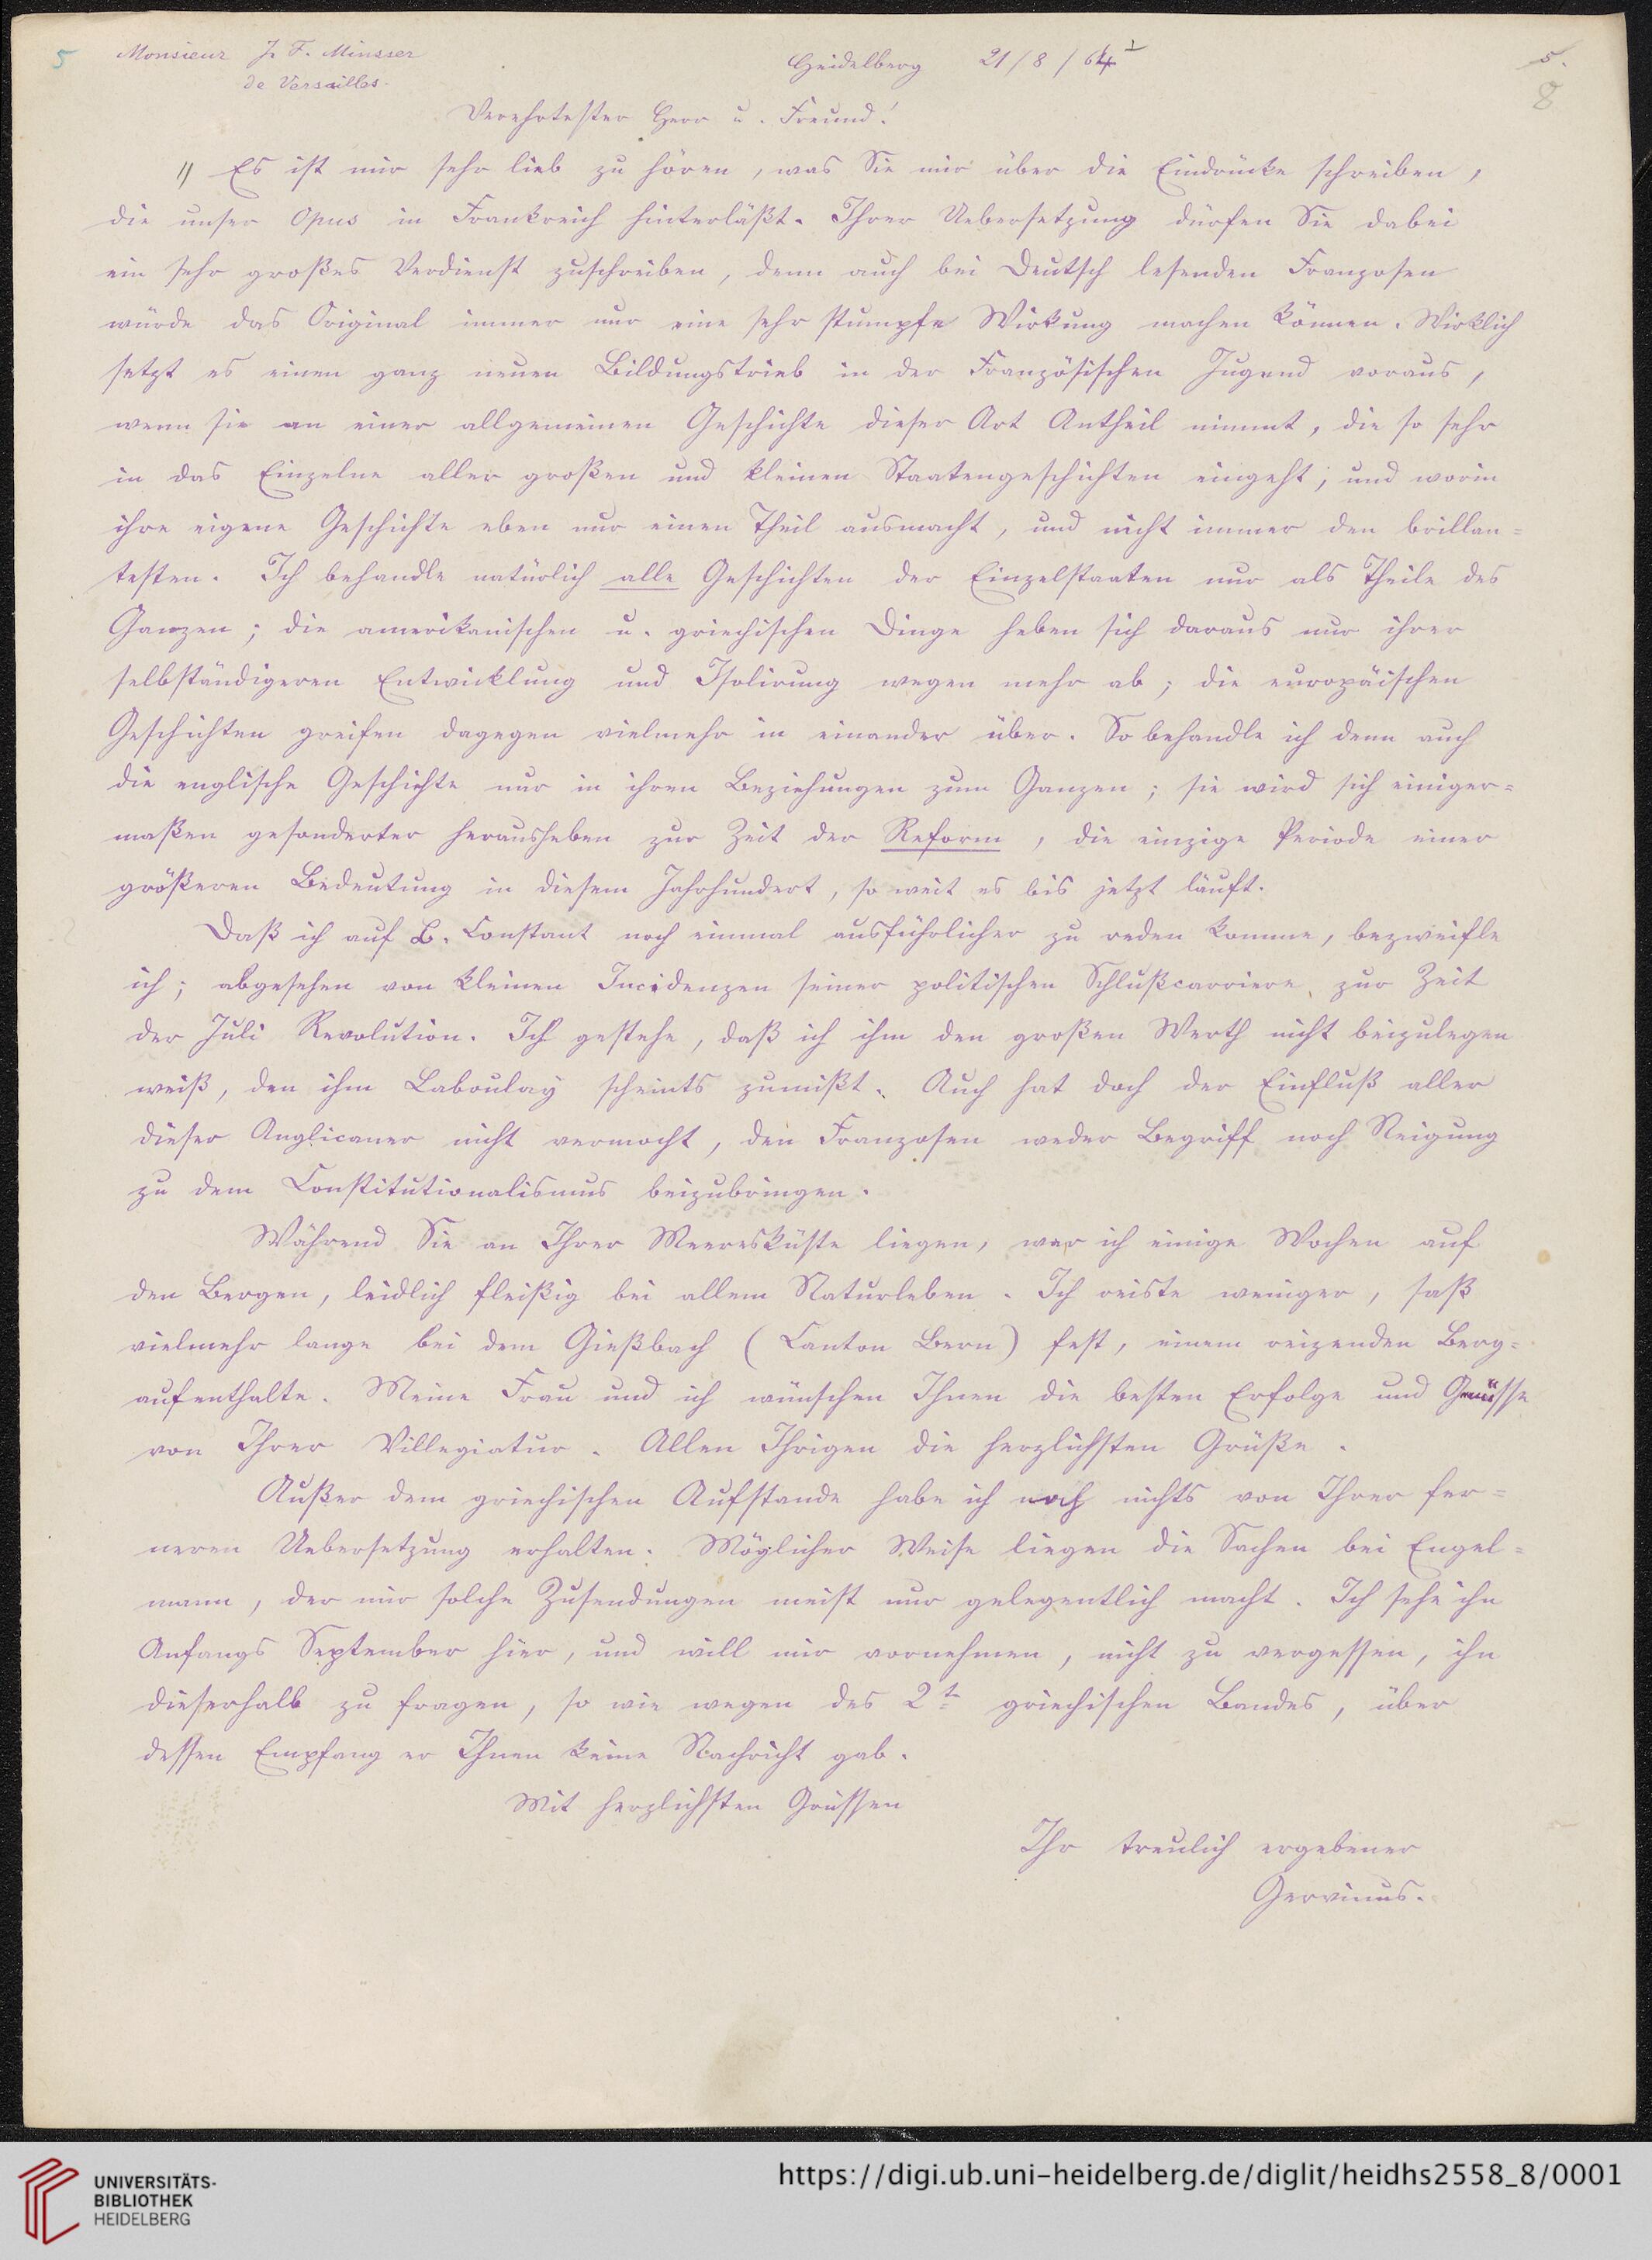 5
Monsieur J. F. Minsser
de Versailles.
Heidelberg 21/8/64
5.
8
Verehrtester Herr u. Freund!
1) Es ist mir sehr lieb zu hören, was Sie mir über die Eindrücke schreiben,
die unser Opus in Frankreich hinterläßt. Ihrer Uebersetzung dürfen Sie dabei
ein sehr großes Verdienst zuschreiben, denn auch bei Deutsch lesenden Franzosen
würde das Original immer nur eine sehr stumpfe Wirkung machen können. Wirklich
setzt es einen ganz neuen Bildungstrieb in der Französischen Jugend voraus,
wenn sie an einer allgemeinen Geschichte dieser Art Antheil nimmt, die so sehr
in das Einzelne aller großen und kleinen Staatengeschichten eingeht; und worin
ihre eigene Geschichte eben nur einen Theil ausmacht, und nicht immer den brillan=
testen. Ich behandle natürlich alle Geschichten der Einzelstaaten nur als Theile des
Ganzen; die amerikanischen u. griechischen Dinge heben sich daraus nur ihrer
selbständigeren Entwicklung und Isolirung wegen mehr ab; die europäischen
Geschichten greifen dagegen vielmehr in einander über. So behandle ich denn auch
die englische Geschichte nur in ihren Beziehungen zum Ganzen; sie wird sich einiger=
maßen gesonderter herausheben zur Zeit der Reform, die einzige Periode einer
größeren Bedeutung in diesem Jahrhundert, so weit es bis jetzt läuft.
Daß ich auf B. Constant noch einmal ausführlicher zu reden komme, bezweifle
ich; abgesehen von kleinen Incidenzen seiner politischen Schlußcarriere zur Zeit
der Juli Revolution. Ich gestehe, daß ich ihm den großen Werth nicht beizulegen
weiß, den ihm Laboulay scheints zumißt. Auch hat doch der Einfluß aller
dieser Anglicaner nicht vermocht, den Franzosen weder Begriff noch Neigung
zu dem Constitutionalismus beizubringen.
Während Sie an Ihrer Meeresküste liegen, war ich einige Wochen auf
den Bergen, leidlich fleißig bei allem Naturleben. Ich reiste weniger, saß
vielmehr lange bei dem Gießbach (Canton Bern) fest, einem reizenden Berg=
aufenthalte. Meine Frau und ich wünschen Ihnen die besten Erfolge und Genüsse
von Ihrer Villegiatur. Allen Ihrigen die herzlichsten Grüße.
Außer dem griechischen Aufstande habe ich noch nichts von Ihrer fer=
neren Uebersetzung erhalten. Möglicher Weise liegen die Sachen bei Engel=
mann, der mir solche Zusendungen meist nur gelegentlich macht. Ich sehe ihn
Anfangs September hier, und will mir vornehmen, nicht zu vergessen, ihn
dieserhalb zu fragen, so wie wegen des 2t. griechischen Bandes, über
dessen Empfang er Ihnen keine Nachricht gab.
Mit herzlichsten Grüssen
Ihr treulich ergebener
Gervinus.
UNIVERSITÄTS-
BIBLIOTHEK
HEIDELBERG
https://digi.ub.uni-heidelberg.de/diglit/heidhs2558_8/0001